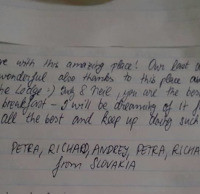 re with this amazing place! Our last d
wonderful also thanks to this place an
he Lodge :) & Neil, you are the bes
breakfast - I will be dreaming of it f
all the best and keep up doing such
PETRA, RICHARD, ANDREJ, PETRA, RICHA
from SLOVAKIA